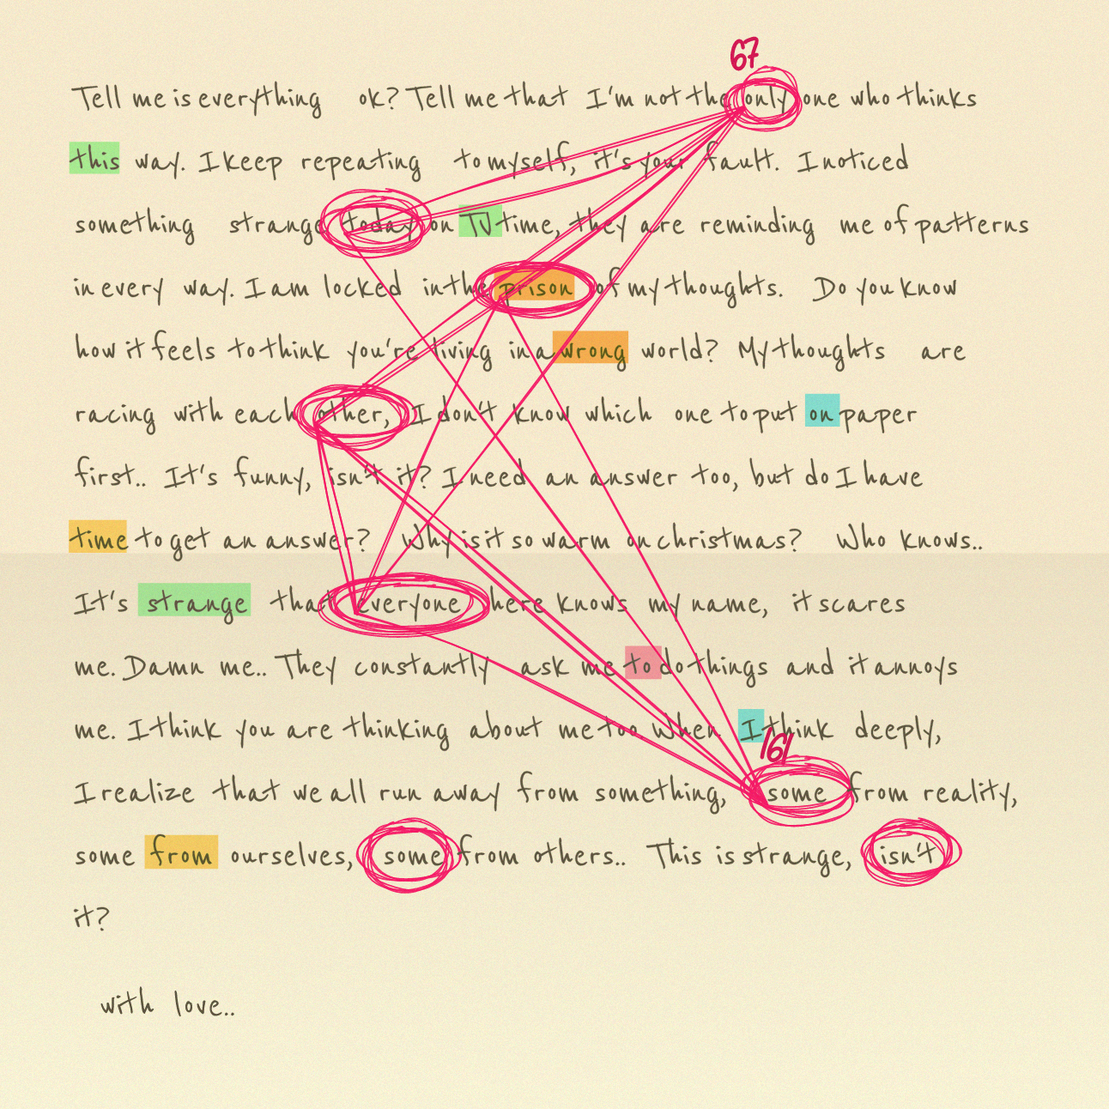 67
Tell me is everything ok? Tell me that I'm not the only one who thinks
this way. I keep repeating to myself, it's your fault. I noticed
something strange today on TV time, they are reminding me of patterns
in every way. I am locked in the prison of my thoughts. Do you know
how it feels to think you're living in a wrong world? My thoughts are
racing with each other, I don't know which one to put on paper
first.. It's funny, isn't it? I need an answer too, but do I have
time to get an answer? Why is it so warm on christmas? Who knows..
It's strange that everyone here knows my name, it scares
me. Damn me.. They constantly ask me to do things and it annoys
me. I think you are thinking about me too when I think deeply,
161
I realize that we all run away from something, some from reality,
some from ourselves, some from others.. This is strange, isn't
it?
with love..